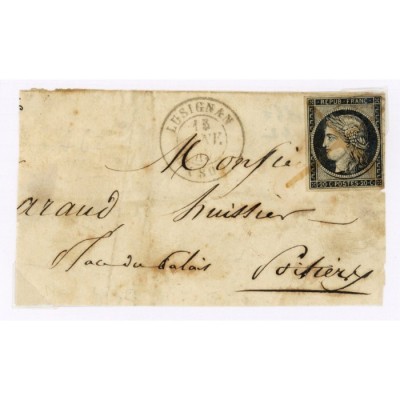 LUSIGNAN
13
REPUB. FRANC.
20 C POSTES 20 C
Monsie
araud huissier
Place du Palais
Poitiers